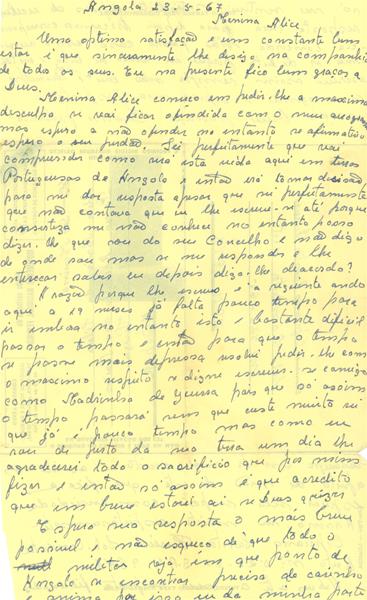 Angola 23-5-67
Menina Alice
Uma optima satisfação e um constante bem
estar é que sinceramente lhe desejo na companhia
de todos os seus. Eu na presente fico bem graças a
Deus.
Menina Alice começo em pedir-lhe a maxima
desculpa se vai ficar ofendida com o meu aerograma
mas espero a não ofender no entanto se afirmativo
espero o seu perdão. Sei perfeitamente que vai
compreender como não esta vida aqui em terras
Portuguesas de Angola e então vai tomar decisão
para me dar resposta apesar que sei perfeitamente
que não contava que eu lhe escreve-se até porque
com certeza me não conhece no entanto posso
dizer-lhe que sou do seu Concelho e não digo
de onde sou mas se me responder e lhe
interessar saber eu depois digo-lhe deacordo?
A razão porque lhe escrevo é a seguinte ando
aqui a 19 meses já falta pouco tempo para
ir embora no entanto isto é bastante dificil
passar o tempo e então para que o tempo
se passe mais depressa resolvi pedir-lhe com
o maximo respeito se digne escrever-se comigo
como Madrinha de Guerra pois que só assim
o tempo passará sem que custe muito sei
que já é pouco tempo mas como eu
sou de perto da sua terra um dia lhe
agradecerei todo o sacrificio que por mim
fizer e então só assim é que acredito
que em breve estarei ai se Deus quizer
Espero sua resposta o mais breve
possivel e não esqueça de que todo o
militar seja em que ponto de
Angola se encontrar precisa de carinho
e anima por isso eu da minha parte